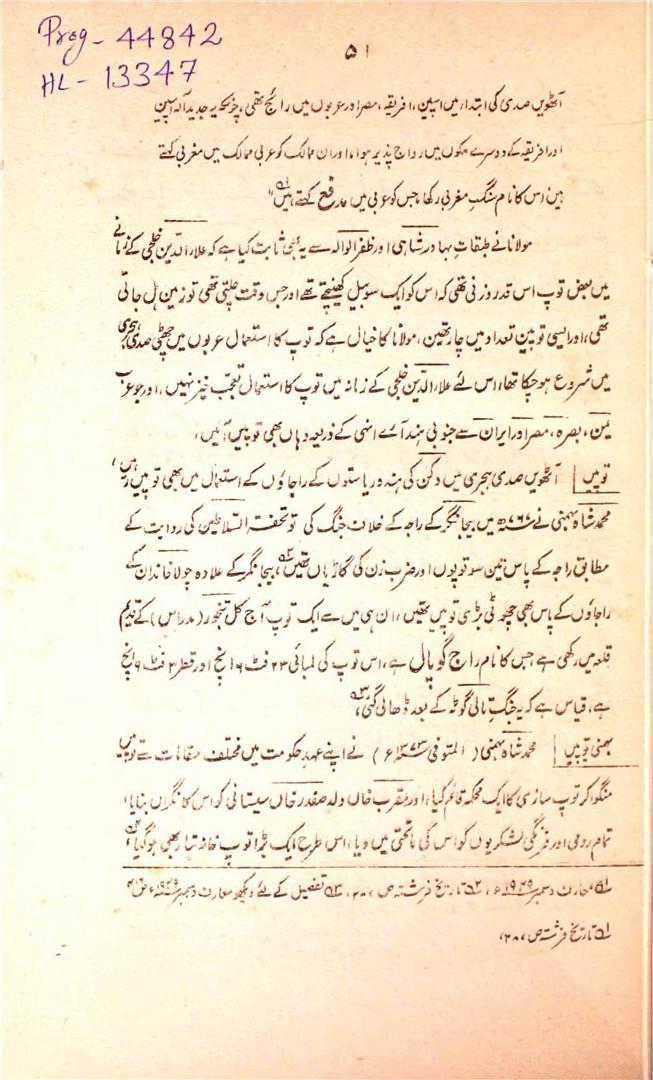 Prog - 44842
HL - 13347
۵۱
آٹھویں صدی کی ابتدا میں اسپین، افریقہ، مصر اور عربوں میں رائج تھی، چونکہ یہ جدید آلہ اسپین
اور افریقہ کے دوسرے ملکوں میں رواج پذیر ہوا، اور ان ممالک کو عربی ممالک میں مغربی کہتے
ہیں، اس کا نام سنگِ مغربی رکھا، جس کو عربی میں مدفع کہتے ہیں"
مولانا نے طبقاتِ بہادر شاہی اور ظفر الوالہ سے یہ بھی ثابت کیا ہے کہ علاء الدین خلجی کے زمانے
میں بعض توپ اس قدر وزنی تھی کہ اس کو ایک سو بیل کھینچتے تھے اور جس وقت چلتی تھی تو زمین ہل جاتی
تھی، اور ایسی توپیں تعداد میں چار تھیں، مولانا کا خیال ہے کہ توپ کا استعمال عربوں میں چھٹی صدی ہجری
میں شروع ہو چکا تھا، اس لئے علاء الدین خلجی کے زمانہ میں توپ کا استعمال تعجب خیز نہیں، اور جو عرب
یمن، بصرہ، مصر اور ایران سے جنوبی ہند آئے انہی کے ذریعہ وہاں بھی توپیں آئیں،
توپیں آٹھویں صدی ہجری میں دکن کی ہندو ریاستوں کے راجاؤں کے استعمال میں بھی توپیں رہیں،
محمد شاہ بہمنی نے ۷۶۷ھ میں بیجانگر کے راجہ کے خلاف جنگ کی تو تحفۃ السلاطین کی روایت کے
مطابق راجہ کے پاس تین سو توپوں اور ضرب زن کی گاڑیاں تھیں، بیجانگر کے علاوہ چولا خاندان کے
راجاؤں کے پاس بھی چھوٹی بڑی توپیں تھیں، ان ہی میں سے ایک توپ آج کل تنجور (مدراس) کے قدیم
قلعہ میں رکھی ہے جس کا نام راج گوپال ہے، اس توپ کی لمبائی ۲۳ فٹ ۶ انچ اور قطر ۲ فٹ ۹ انچ
ہے، قیاس ہے کہ یہ جنگ تالی کوٹہ کے بعد ڈھالی گئی،
بہمنی توپیں محمد شاہ بہمنی (المتوفی ۱۳۷۳ء) نے اپنے عہدِ حکومت میں مختلف مقامات سے توپیں
منگوا کر توپ سازی کا ایک محکمہ قائم کیا، اور مقرب خاں ولد صفدر خاں سیستانی کو اس کا نگراں بنایا،
تمام رومی اور فرنگی لشکریوں کو اس کی ماتحتی میں دیا، اس طرح ایک بڑا توپ خانہ تیار بھی ہو گیا،
معارف دسمبر ء، تاریخ فرشتہ ص ۲۸۰، تفصیل کے لئے دیکھو معارف دسمبر
تاریخ فرشتہ ص ۲۸۷،